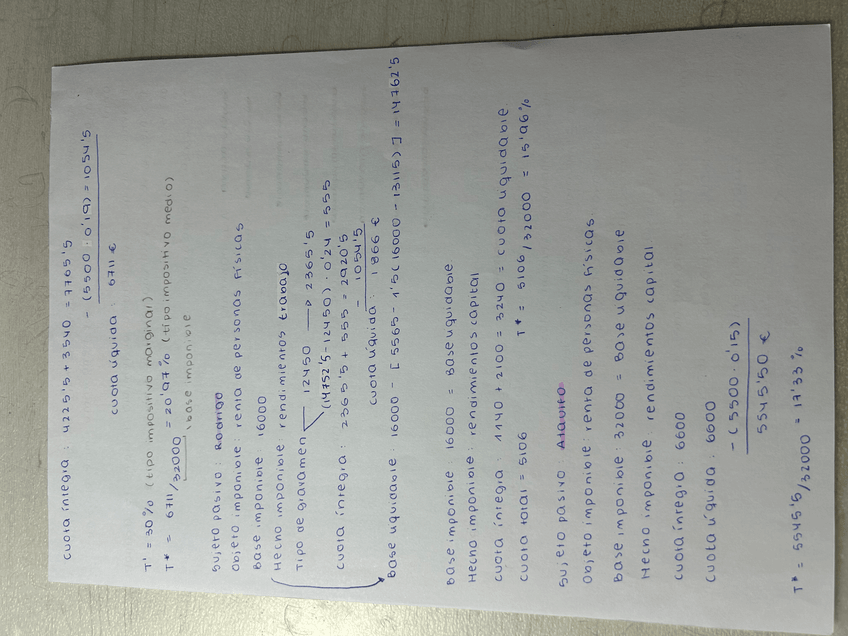 cuota íntegra: 4225'5 + 3540 = 7765'5
- (5500 · 0'19) = 1054'5
cuota líquida: 6711 €
T' = 30% (tipo impositivo marginal)
T* = 6711/32000 = 20'97% (tipo impositivo medio)
base imponible
Sujeto pasivo: Rodrigo
Objeto imponible: renta de personas físicas
Base imponible 16000
Hecho imponible: rendimientos trabajo
Tipo de gravamen 12450 → 2365'5
(14752'5-12450) · 0'24 = 555
cuota íntegra: 2365'5 + 555 = 2920'5
- 1054'5
cuota líquida: 1866 €
Base liquidable: 16000 - [5565 - 1'5(16000 - 13115)] = 14762'5
Base imponible 16000 = Base liquidable
Hecho imponible: rendimientos capital
cuota íntegra: 1140 + 2100 = 3240 = cuota liquidable
cuota total = 5106 T* = 5106/32000 = 15'96%
Sujeto pasivo:
Objeto imponible: renta de personas físicas.
Base imponible: 32000 = Base liquidable
Hecho imponible rendimientos capital
cuota íntegra: 6600
cuota líquida: 6600
- (5500 · 0'15)
5545'50 €
T* = 5545'5/32000 = 17'33%